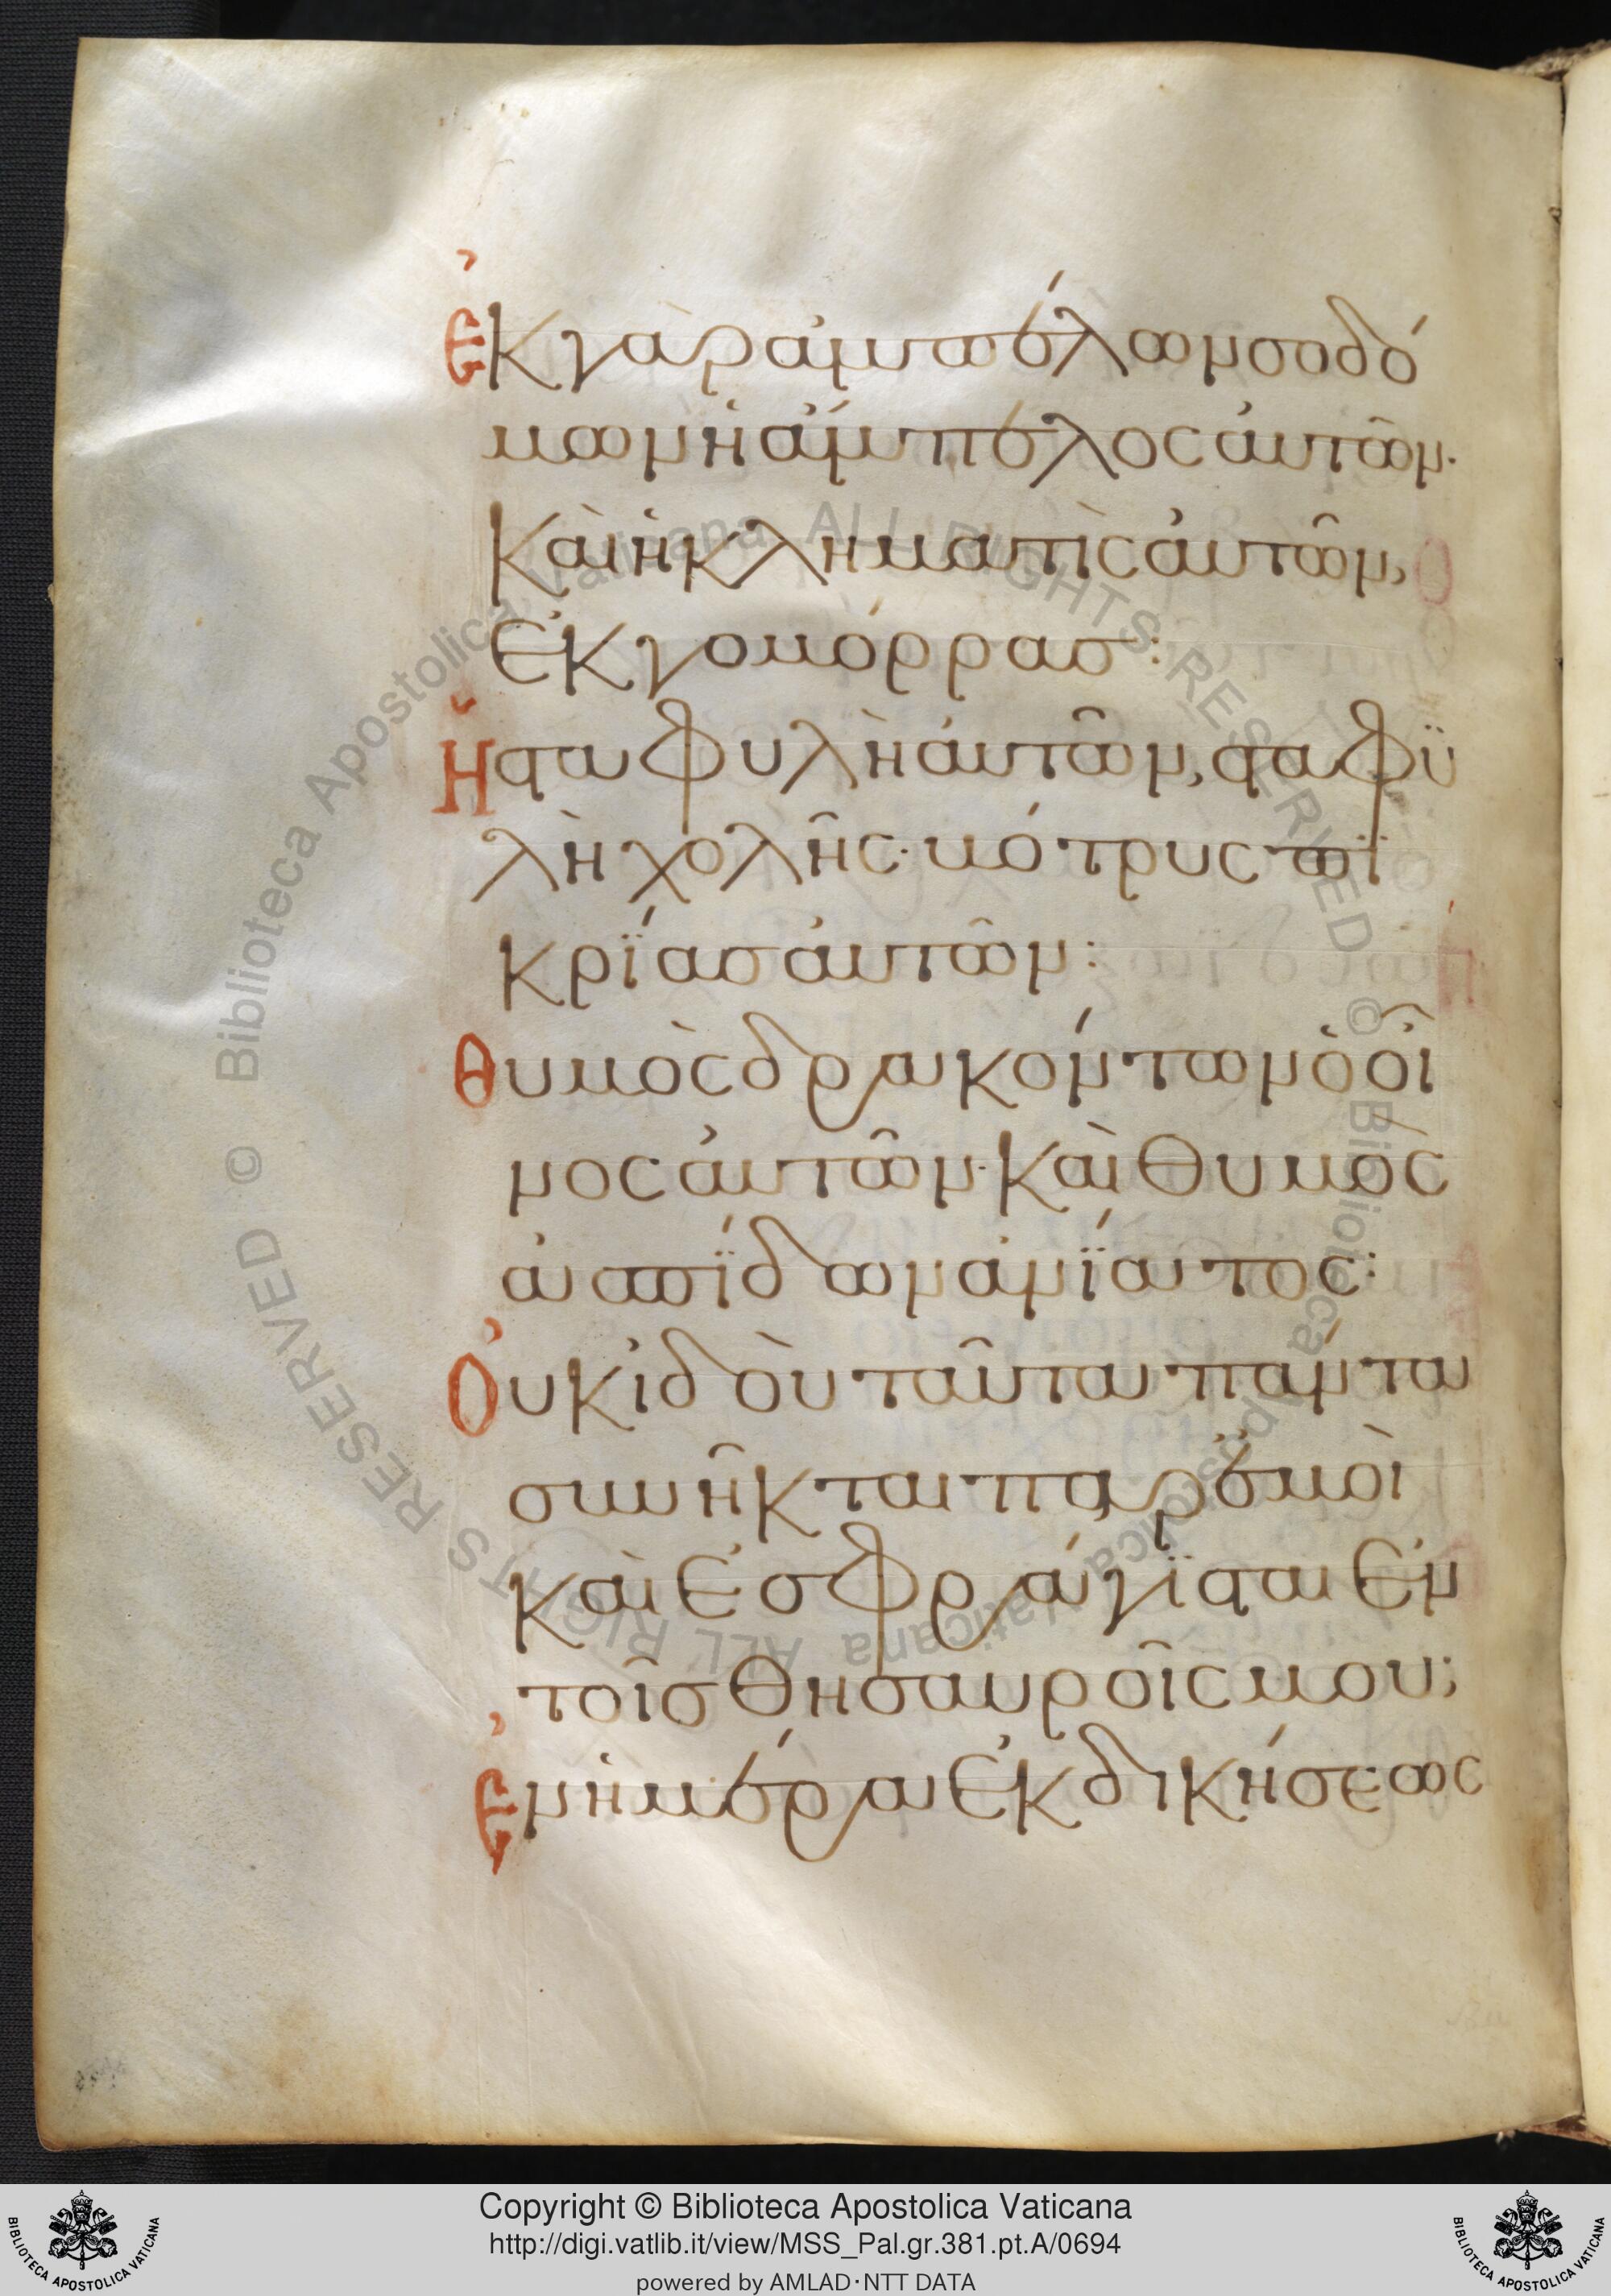 Ἐκ γὰρ ἀμπέλων σοδό
μων ἡ ἄμπελος ἀυτῶν·
Καὶ ἡ κληματὶς ἀυτῶν,
Ἐκ γομόρρας:
Ἡ σταφυλὴ ἀυτῶν, σταφϋ
λὴ χολῆς· κότρυς πϊ
κρΐας ἀυτῶν:
Θυμὸς δρακόντων ὁ ὁῖ
νος ἀυτῶν· Καὶ θυμὸς
ἀσπΐδων ἀνΐατος:
Ὀυκ ἰδοὺ ταῦτα πάντα
συνῆκται παρ' ἐμοὶ
Καὶ ἐσφράγϊσται ἐν
τοῖς θησαυροῖς μου;
Ἐν ἡμέρα ἐκδικήσεως
Copyright © Biblioteca Apostolica Vaticana
http://digi.vatlib.it/view/MSS_Pal.gr.381.pt.A/0694
powered by AMLAD·NTT DATA
BIBLIOTECA APOSTOLICA VATICANA
BIBLIOTECA APOSTOLICA VATICANA
© Biblioteca Apostolica Vaticana ALL RIGHTS RESERVED
© Biblioteca Apostolica Vaticana ALL RIGHTS RESERVED